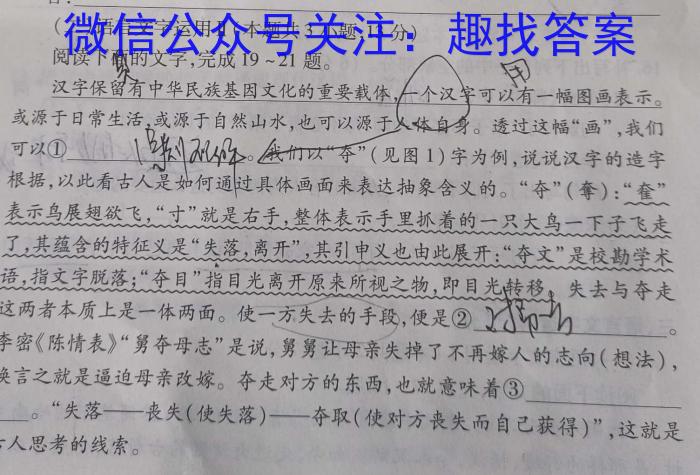 微信公众号关注：趣找答案
语言文字运用Ⅱ(本题共3小题,
阅读下面的文字,完成19~21题。
汉字保留有中华民族基因文化的重要载体,一个汉字可以有一幅图画表示。
或源于日常生活,或源于自然山水,也可以源于人体自身。透过这幅“画”,我们
可以① 。我们以“夺”(见图1)字为例,说说汉字的造字
根据,以此看古人是如何通过具体画面来表达抽象含义的。“夺”(奪):“奞”
表示鸟展翅欲飞,“寸”就是右手,整体表示手里抓着的一只大鸟一下子飞走
了,其蕴含的特征义是“失落,离开”,其引申义也由此展开:“夺文”是校勘学术
语,指文字脱落;“夺目”指目光离开原来所视之物,即目光转移。失去与夺走
这两者本质上是一体两面。使一方失去的手段,便是②
李密《陈情表》“舅夺母志”是说,舅舅让母亲失掉了不再嫁人的志向(想法),
换言之就是逼迫母亲改嫁。夺走对方的东西,也就意味着③
。“失落——丧失(使失落)——夺取(使对方丧失而自己获得)”,这就是
古人思考的线索。